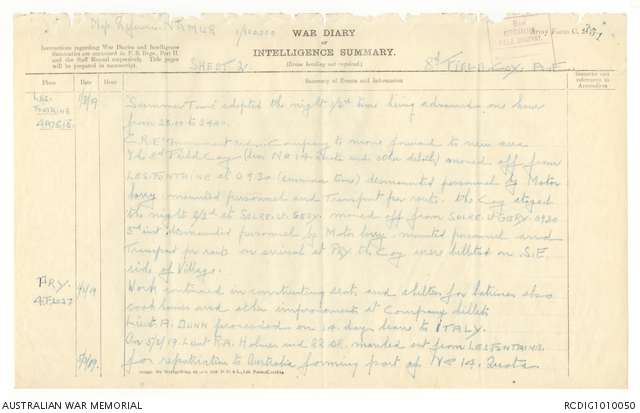 Map Reference NAMUR 1/100000
WAR DIARY
or
INTELLIGENCE SUMMARY.
(Erase heading not required.)
Army Form C. 2118
Instructions regarding War Diaries and Intelligence
Summaries are contained in F. S. Regs., Part II.
and the Staff Manual respectively. Title pages
will be prepared in manuscript.
SHEET 2
8th FIELD COY. A.E.
Place
Date
Hour
Summary of Events and Information
Remarks and
references to
Appendices
LES-
FONTAINE
Summer Time adopted the night time being advanced one hour
from 23.00 to 24.00.
C.R.E. Company to move forward to new area
Field Coy (less No 14 Quota and other details) moved off from
LESFONTAINE at 0930 (summer time) dismounted personnel by Motor
lorry mounted personnel and Transport per route. The Coy stayed
the night at SOLRE ST GERY. moved off from SOLRE ST GERY 0920
dismounted personnel by Motor lorry, mounted personnel and
Transport per route on arrival at PRY the Coy were billeted on S.E.
side of Village.
PRY
Work continued in constructing seats and shelters for latrines also
cookhouses and other improvements at Company billets
Lieut A. DUNN proceeded on 14 days leave to ITALY.
On 5/3/19. Lieut R.A. Holmes and 22 OR. marched out from LESFONTAINE
for repatriation to Australia forming part of No 14. Quota
AUSTRALIAN WAR MEMORIAL
RCDIG1010050